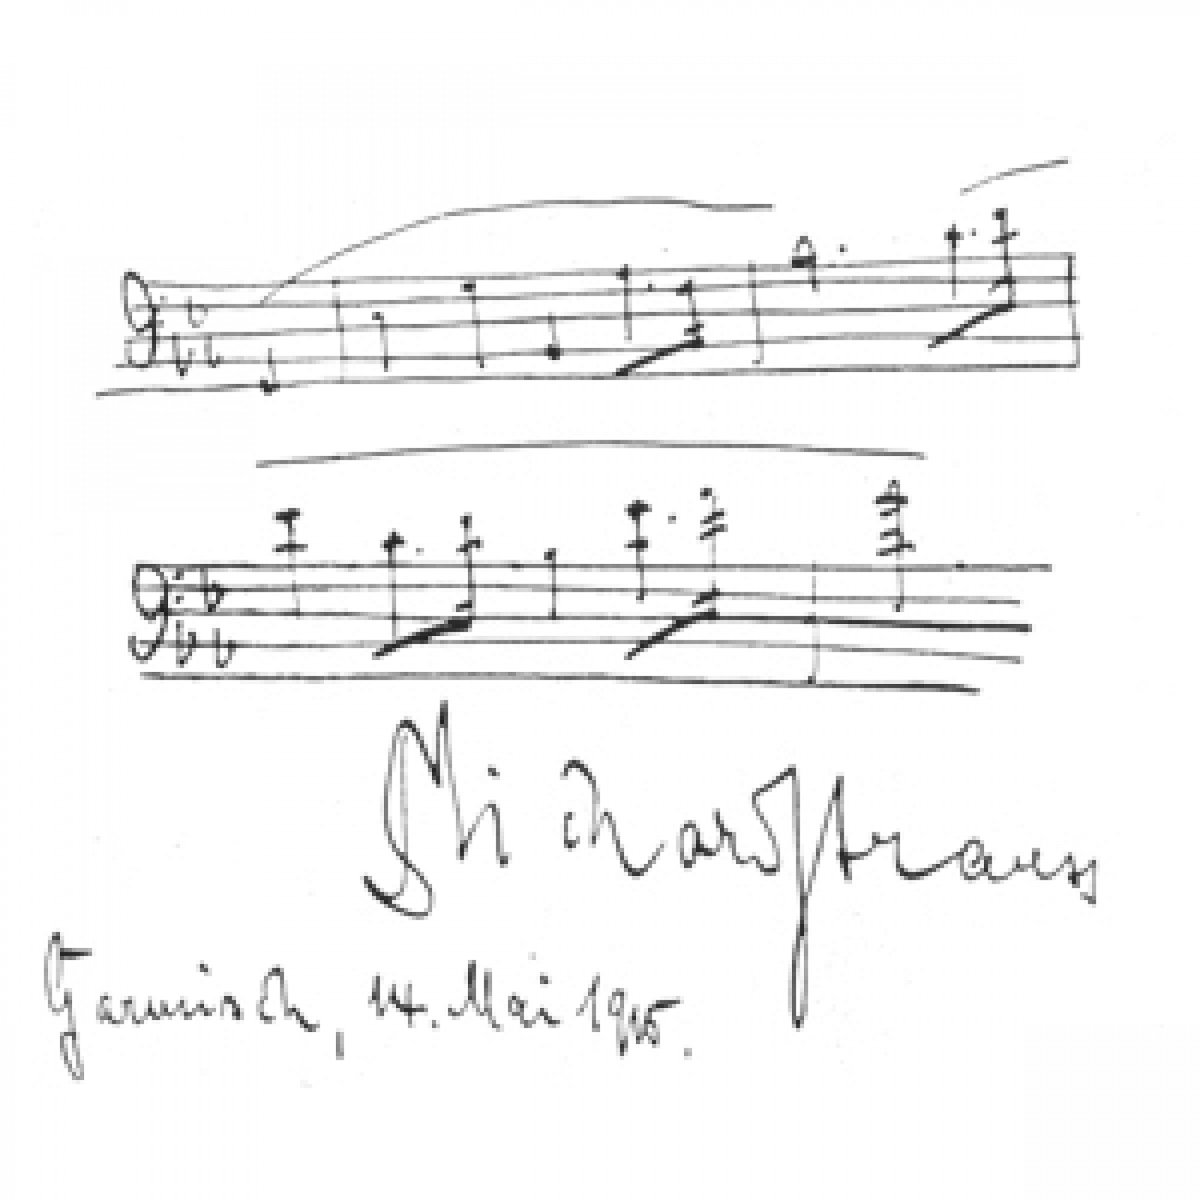 Richard Strauss
Garmisch, 14. Mai 1945.